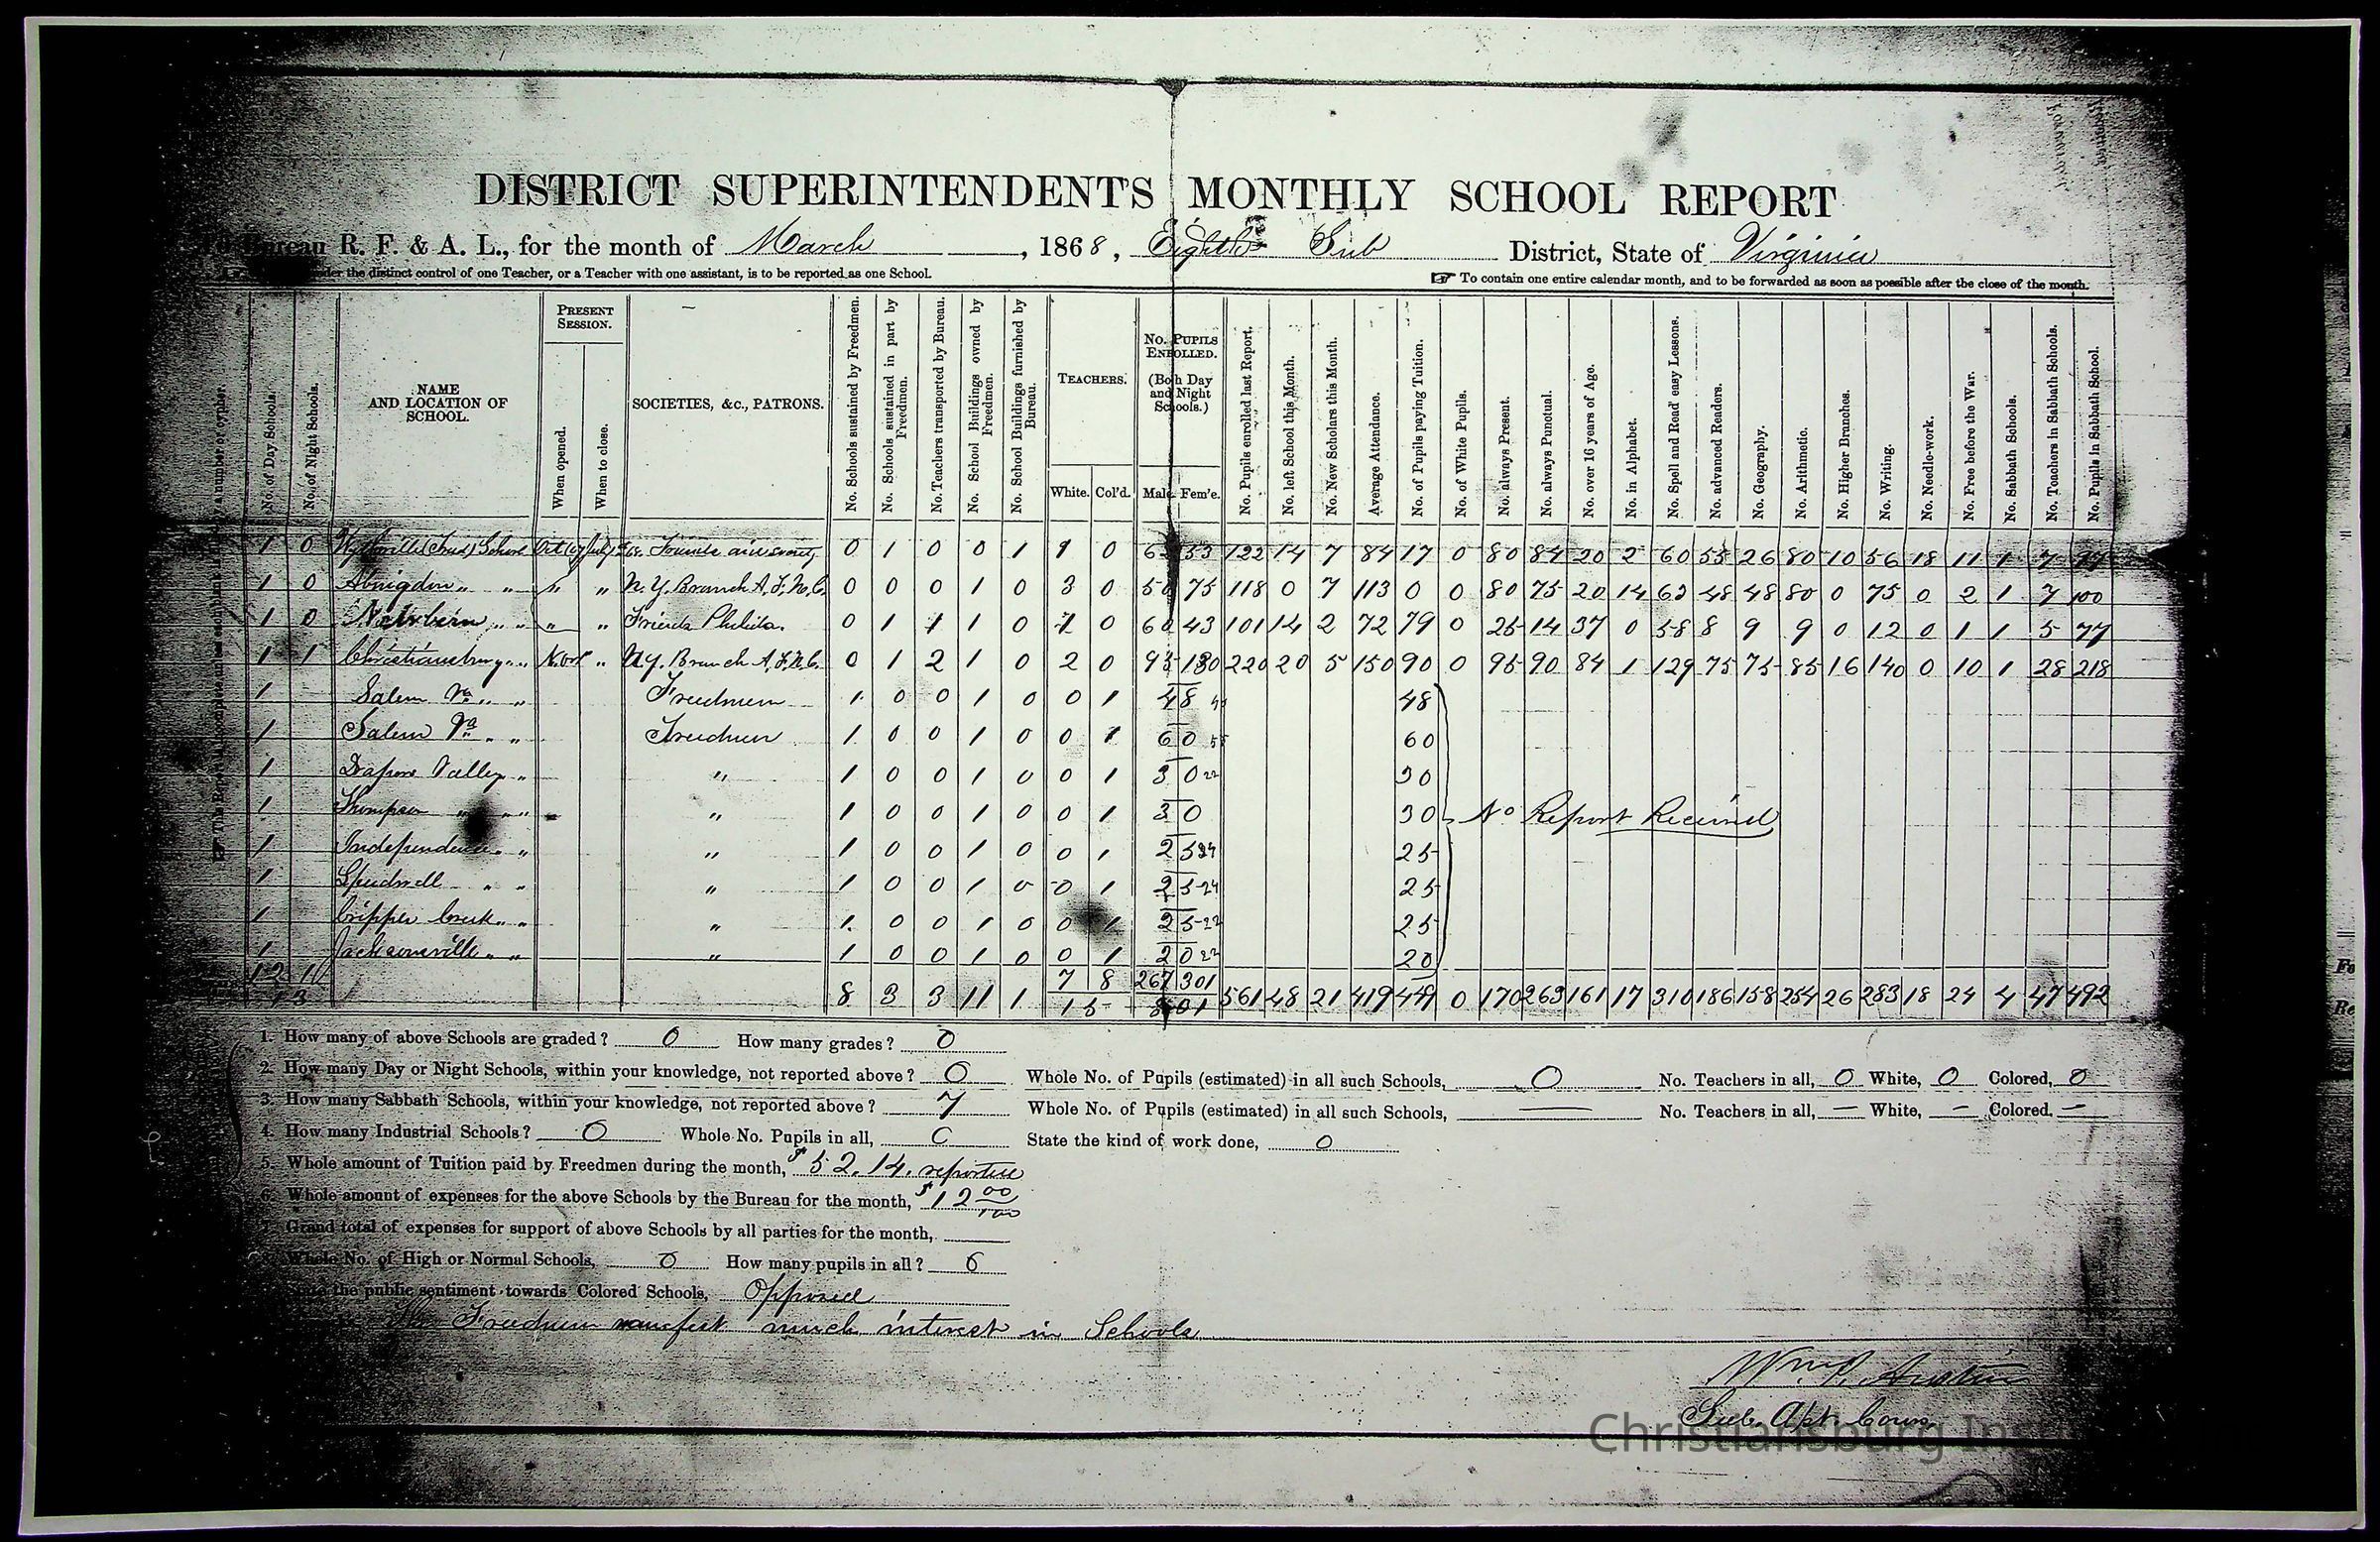 DISTRICT SUPERINTENDENT'S MONTHLY SCHOOL REPORT
Bureau R. F. & A. L., for the month of March, 1868, Eighth Sub District, State of Virginia
under the distinct control of one Teacher, or a Teacher with one assistant, is to be reported as one School.
☞ To contain one entire calendar month, and to be forwarded as soon as possible after the close of the month.
No. of Day Schools. No. of Night Schools. NAME AND LOCATION OF SCHOOL. PRESENT SESSION. When opened. When to close. SOCIETIES, &c., PATRONS. No. Schools sustained by Freedmen. No. Schools sustained in part by Freedmen. No. Teachers transported by Bureau. No. School Buildings owned by Freedmen. No. School Buildings furnished by Bureau. TEACHERS. White. Col'd. No. PUPILS ENROLLED. (Both Day and Night Schools.) Male. Fem'e. No. Pupils enrolled last Report. No. left School this Month. No. New Scholars this Month. Average Attendance. No. of Pupils paying Tuition. No. of White Pupils. No. always Present. No. always Punctual. No. over 16 years of Age. No. in Alphabet. No. Spell and Read easy Lessons. No. advanced Readers. No. Geography. No. Arithmetic. No. Higher Branches. No. Writing. No. Needle-work. No. Free before the War. No. Sabbath Schools. No. Teachers in Sabbath Schools. No. Pupils in Sabbath School.
1 0 Wytheville School 0 1 0 0 1 1 0 53 122 14 7 84 17 0 80 84 20 2 60 55 26 80 10 56 18 11 1 7 97
1 0 Abingdon " " " " N. Y. Branch A. F. U. C. 0 0 0 1 0 3 0 50 75 118 0 7 113 0 0 80 75 20 14 63 48 48 80 0 75 0 2 1 7 100
1 0 Newbern " " " " Friends Philida. 0 1 1 1 0 1 0 60 43 101 14 2 72 79 0 25 14 37 0 58 8 9 9 0 12 0 1 1 5 77
1 1 Christiansburg " " " N.Y. Branch A. F. U. C. 0 1 2 1 0 2 0 95 130 220 20 5 150 90 0 95 90 84 1 129 75 75 85 16 140 0 10 1 28 218
1 Salem Va " " Freedmen 1 0 0 1 0 0 1 48 48
1 Salem Va " " Freedmen 1 0 0 1 0 0 1 60 60
1 Drapers Valley " " 1 0 0 1 0 0 1 30 22 30
1 Thompson " " " 1 0 0 1 0 0 1 30 30 No Report Received
1 Independence " " 1 0 0 1 0 0 1 25 24 25
1 Speedwell " " " 1 0 0 1 0 0 1 25 24 25
1 Cripple Creek " " " 1 0 0 1 0 0 1 25 22 25
1 Jacksonville " " " 1 0 0 1 0 0 1 20 22 20
12 1 7 8 267 301
13 8 3 3 11 1 15 801 561 48 21 419 449 0 170 263 161 17 310 186 158 254 26 283 18 24 4 47 492
1. How many of above Schools are graded? 0 How many grades? 0
2. How many Day or Night Schools, within your knowledge, not reported above? 0 Whole No. of Pupils (estimated) in all such Schools, 0 No. Teachers in all, 0 White, 0 Colored, 0
3. How many Sabbath Schools, within your knowledge, not reported above? 7 Whole No. of Pupils (estimated) in all such Schools, — No. Teachers in all, — White, — Colored. —
4. How many Industrial Schools? 0 Whole No. Pupils in all, 0 State the kind of work done, 0
5. Whole amount of Tuition paid by Freedmen during the month, $52.14. reported
6. Whole amount of expenses for the above Schools by the Bureau for the month, $12 00/100
Grand total of expenses for support of above Schools by all parties for the month,
Whole No. of High or Normal Schools, 0 How many pupils in all? 0
the public sentiment towards Colored Schools, Opposed
The Freedmen manifest much interest in Schools
Wm. P. Austin
Sub. Asst. Coms.
Christiansburg Inst